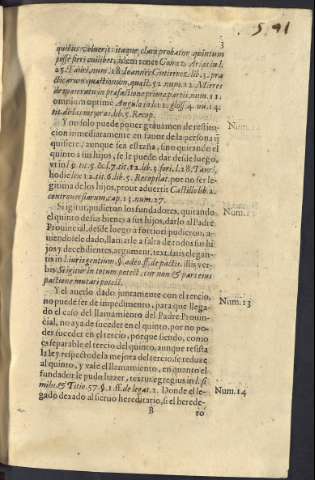 5, 91
3
quibus voluerit: itaque, clarè probatur quintum
posse fieri cuilibet, idem tenet Gomez Arias in l.
25. Tauri, num. 18. Ioannes Gutierrez lib. 3. pra
cticarum quæstionum, quæst. 52. num. 12. Mieres
de maioratu in præfactione primæ partis, num. 11.
omnium optimè Angulo in l. 11. gloss. 4. nu. 14.
tit. de las mejoras, lib. 5. Recop.
Y no solo puede poner gravamen de restitu-
cion inmediatamente en fauor de la persona q̃
quisiere, aunque sea estraña, sino quitando el
quinto a sus hijos, se le puede dar desde luego,
Num. 12
hodie lex 12. tit. 6. lib. 5. Recopilat. por no ser le-
gitima de los hijos, prout advertit Castillo lib. 2.
controuersiarum, cap. 13. num. 27.
Seiguir, pudieron los fundadores, quitando
el quinto de sus bienes a sus hijos, darlo al Padre
Prouincial, desde luego a fortiori pudieron, a-
uiendosele dado, llamarle a falta de todos sus hi
jos y decendientes, argument. text. satis elegan-
tis in l. iurisgentium §. adeo ff. de pactis, illis ver-
bis Seigitur in totum potest, cur non & pars eius
pactione mutari potest.
Num. 13
Y el auerlo dado juntamente con el tercio,
no puede ser de impedimento, para que llega-
do el caso del llamamiento del Padre Prouin-
cial, no aya de suceder en el quinto, por no po-
der suceder en el tercio, porque siendo, como
es separable el tercio del quinto, aunque resista
la ley respecto de la mejora del tercio, se reduze
al quinto, y vale el llamamiento, en quanto el
fundador le pudo hazer, textus egregius in l. si
mihi, & Titio 57. §. 1. ff. de legat. 2. Donde el le-
gado dexado al sieruo hereditario, si el herede-
Num. 13
Num. 14
B
ro